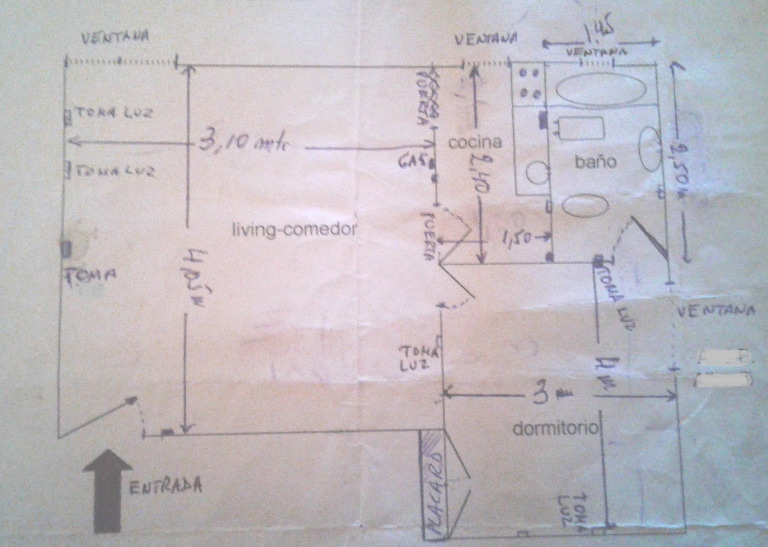 VENTANA
VENTANA
1,45
VENTANA
TOMA LUZ
PUERTA
3,10 mts
cocina
2,40
baño
2,50 m
TOMA LUZ
GAS
living-comedor
PUERTA
1,50
TOMA
TOMA LUZ
VENTANA
TOMA
LUZ
4 m
3 m
dormitorio
PLACARD
ENTRADA
TOMA
LUZ